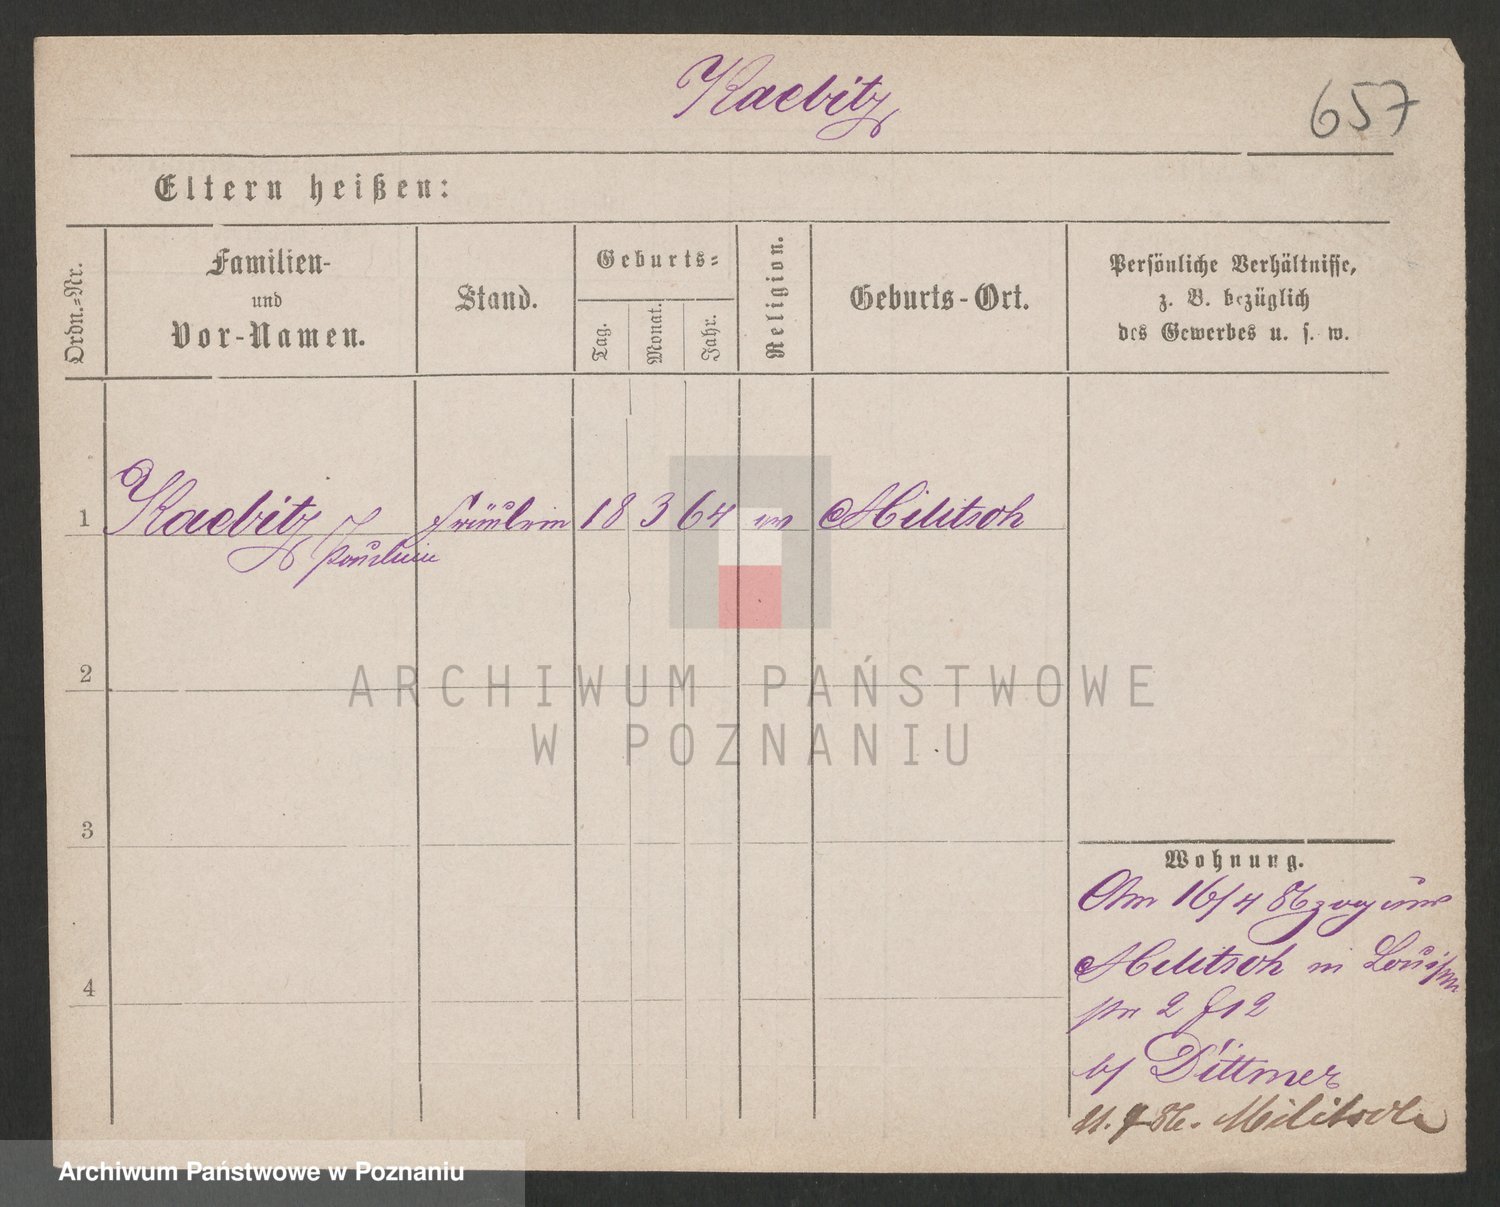 Kaebitz
657
Eltern heißen:
Ordn.-Nr.
Familien-
und
Vor-Namen.
Stand.
Geburts-
Tag.
Monat.
Jahr.
Religion.
Geburts-Ort.
Persönliche Verhältnisse,
z. B. bezüglich
des Gewerbes u. s. w.
1 Kaebitz Fräulein 18 3 64 Militsch
Pauline
2
ARCHIWUM PAŃSTWOWE
W POZNANIU
3
Wohnung.
Am 16/4 86 zog
Militsch in Louisen
2
4
b/ Dittmer
86. Militsch
Archiwum Państwowe w Poznaniu